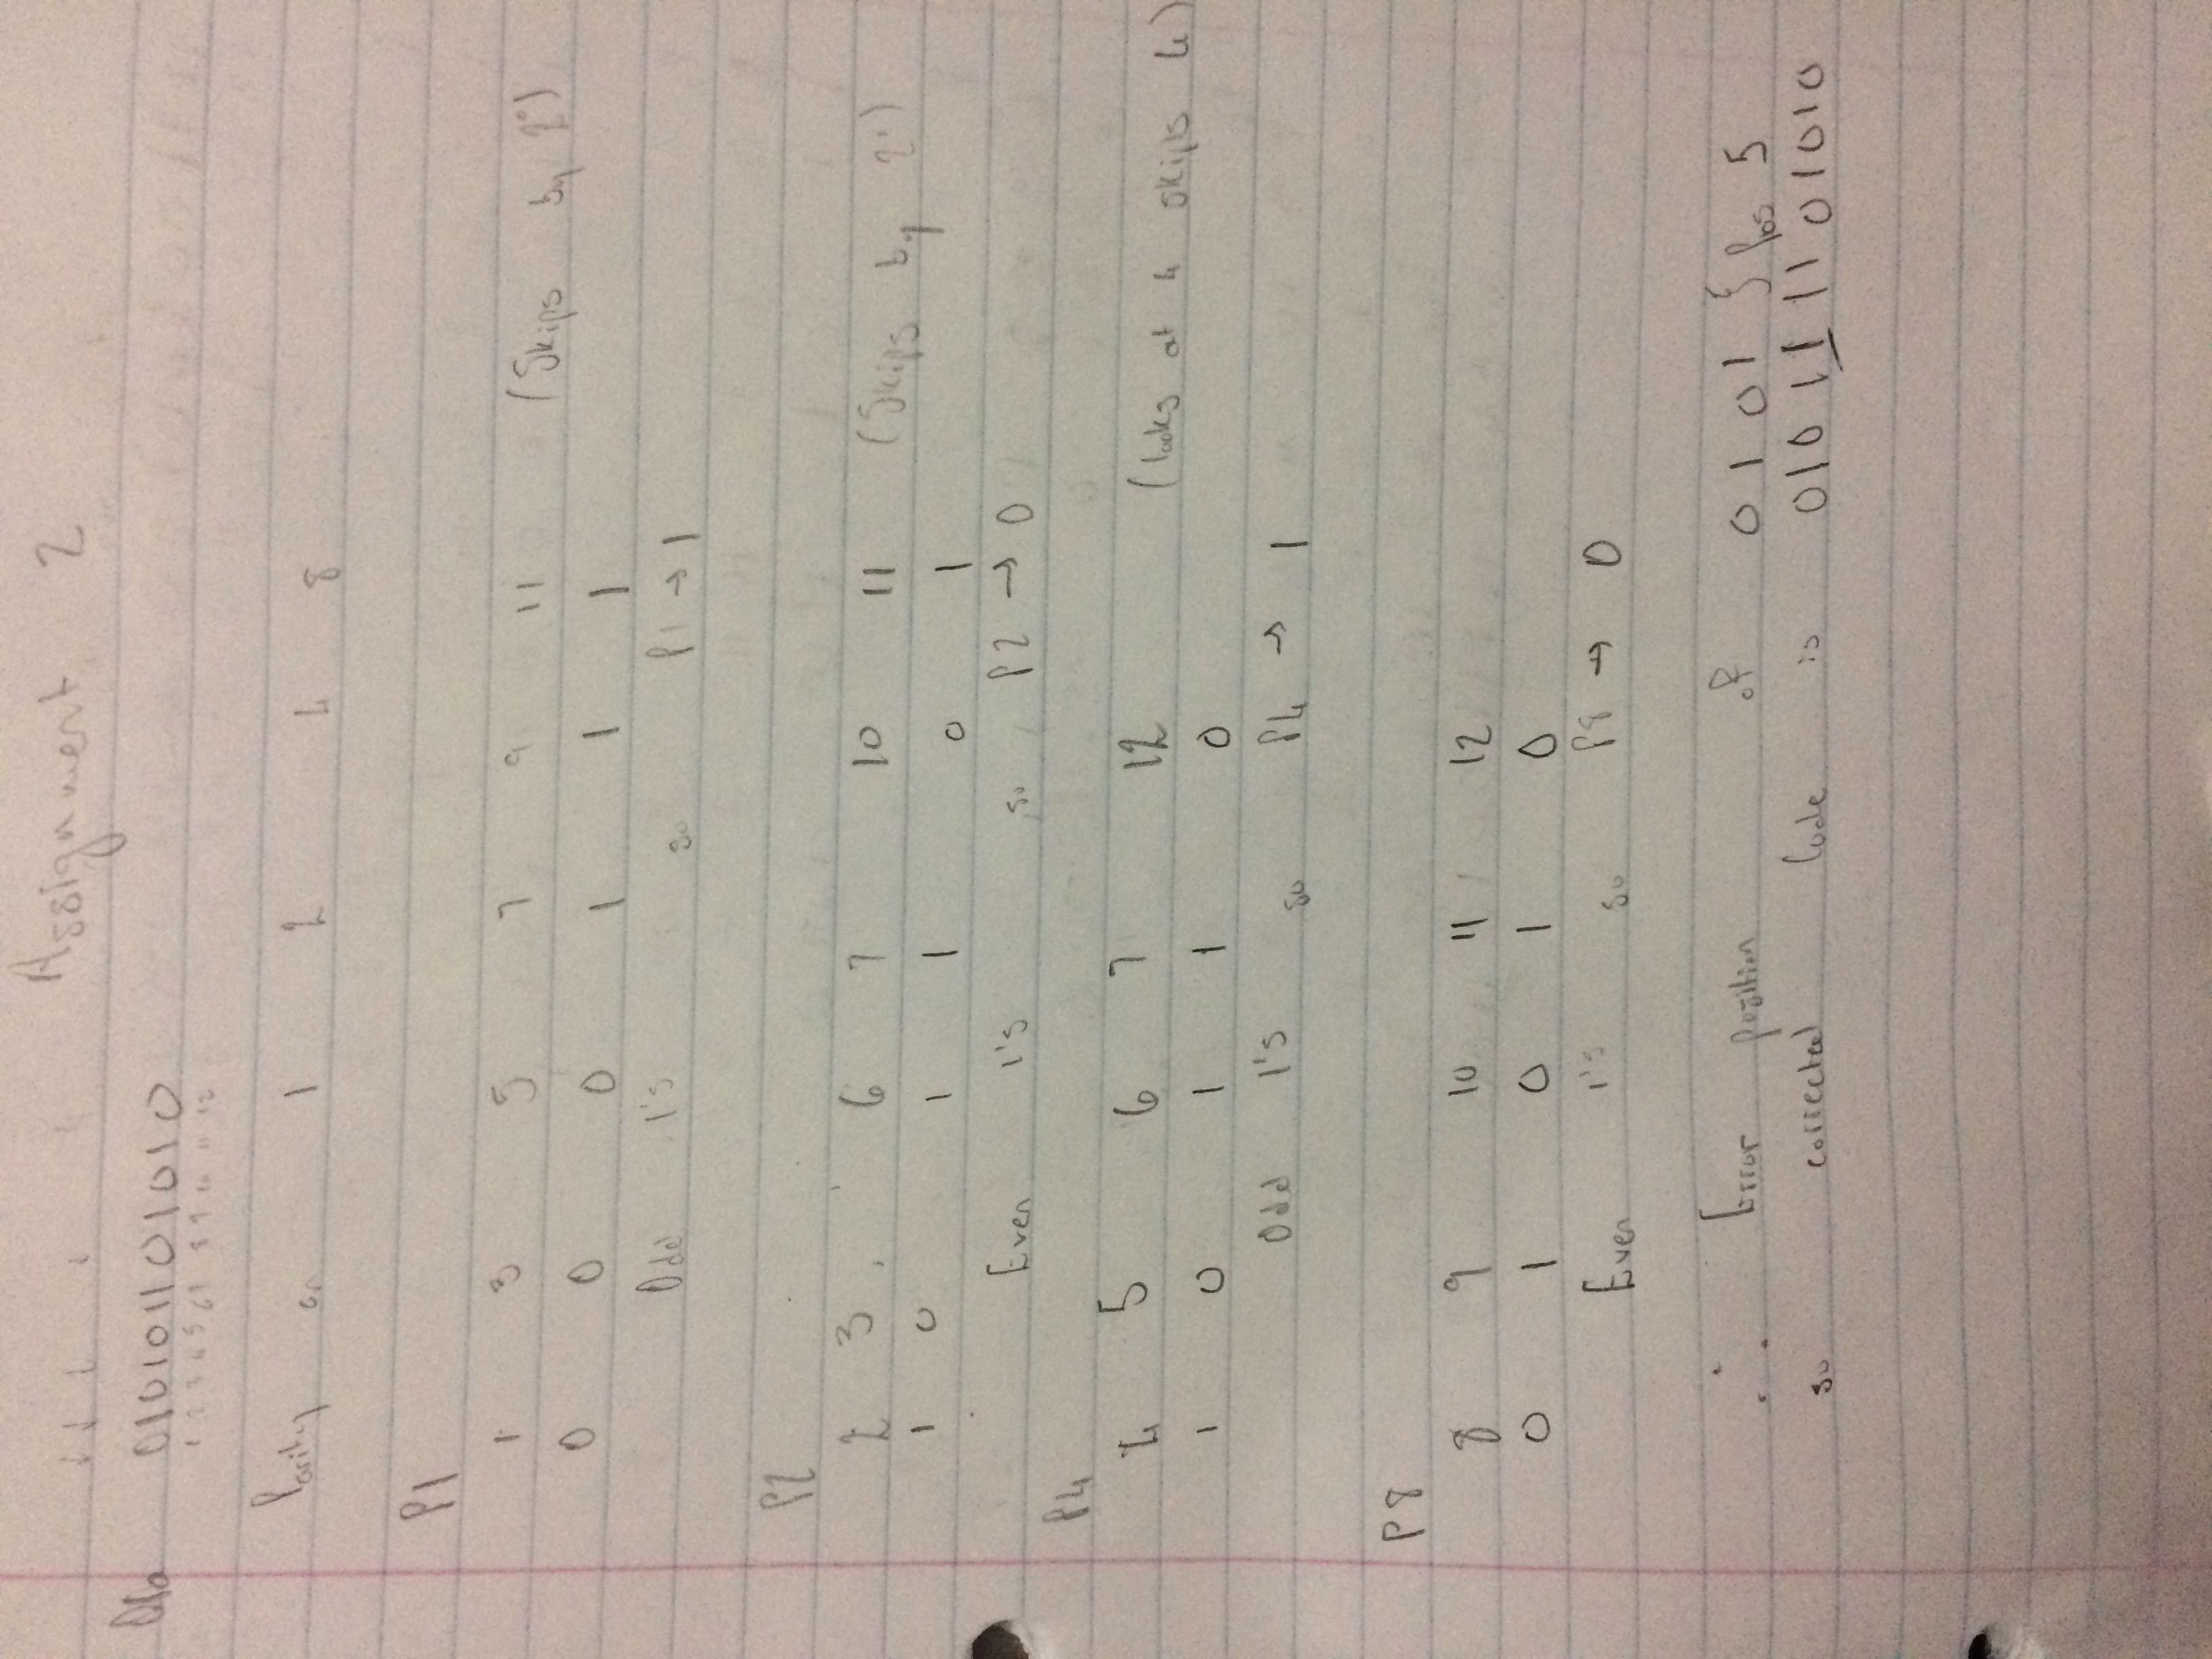 Assignment 2
010101101010
1 2 3 4 5 6 7 8 9 10 11 12
Parity on 1 2 4 8
P1
1 3 5 7 9 11 (Skips by 2°)
0 0 0 1 1 1
Odd 1's so P1 → 1
P2
2 3 6 7 10 11 (Skips by 2')
1 0 1 1 0 1
Even 1's so P2 → 0
P4
4 5 6 7 12 (looks at 4 skips 4)
1 0 1 1 0
Odd 1's so P4 → 1
P8
8 9 10 11 12
0 1 0 1 0
Even 1's so P8 → 0
∴ Error position of 0101 } Pos 5
so corrected code is 010111101010